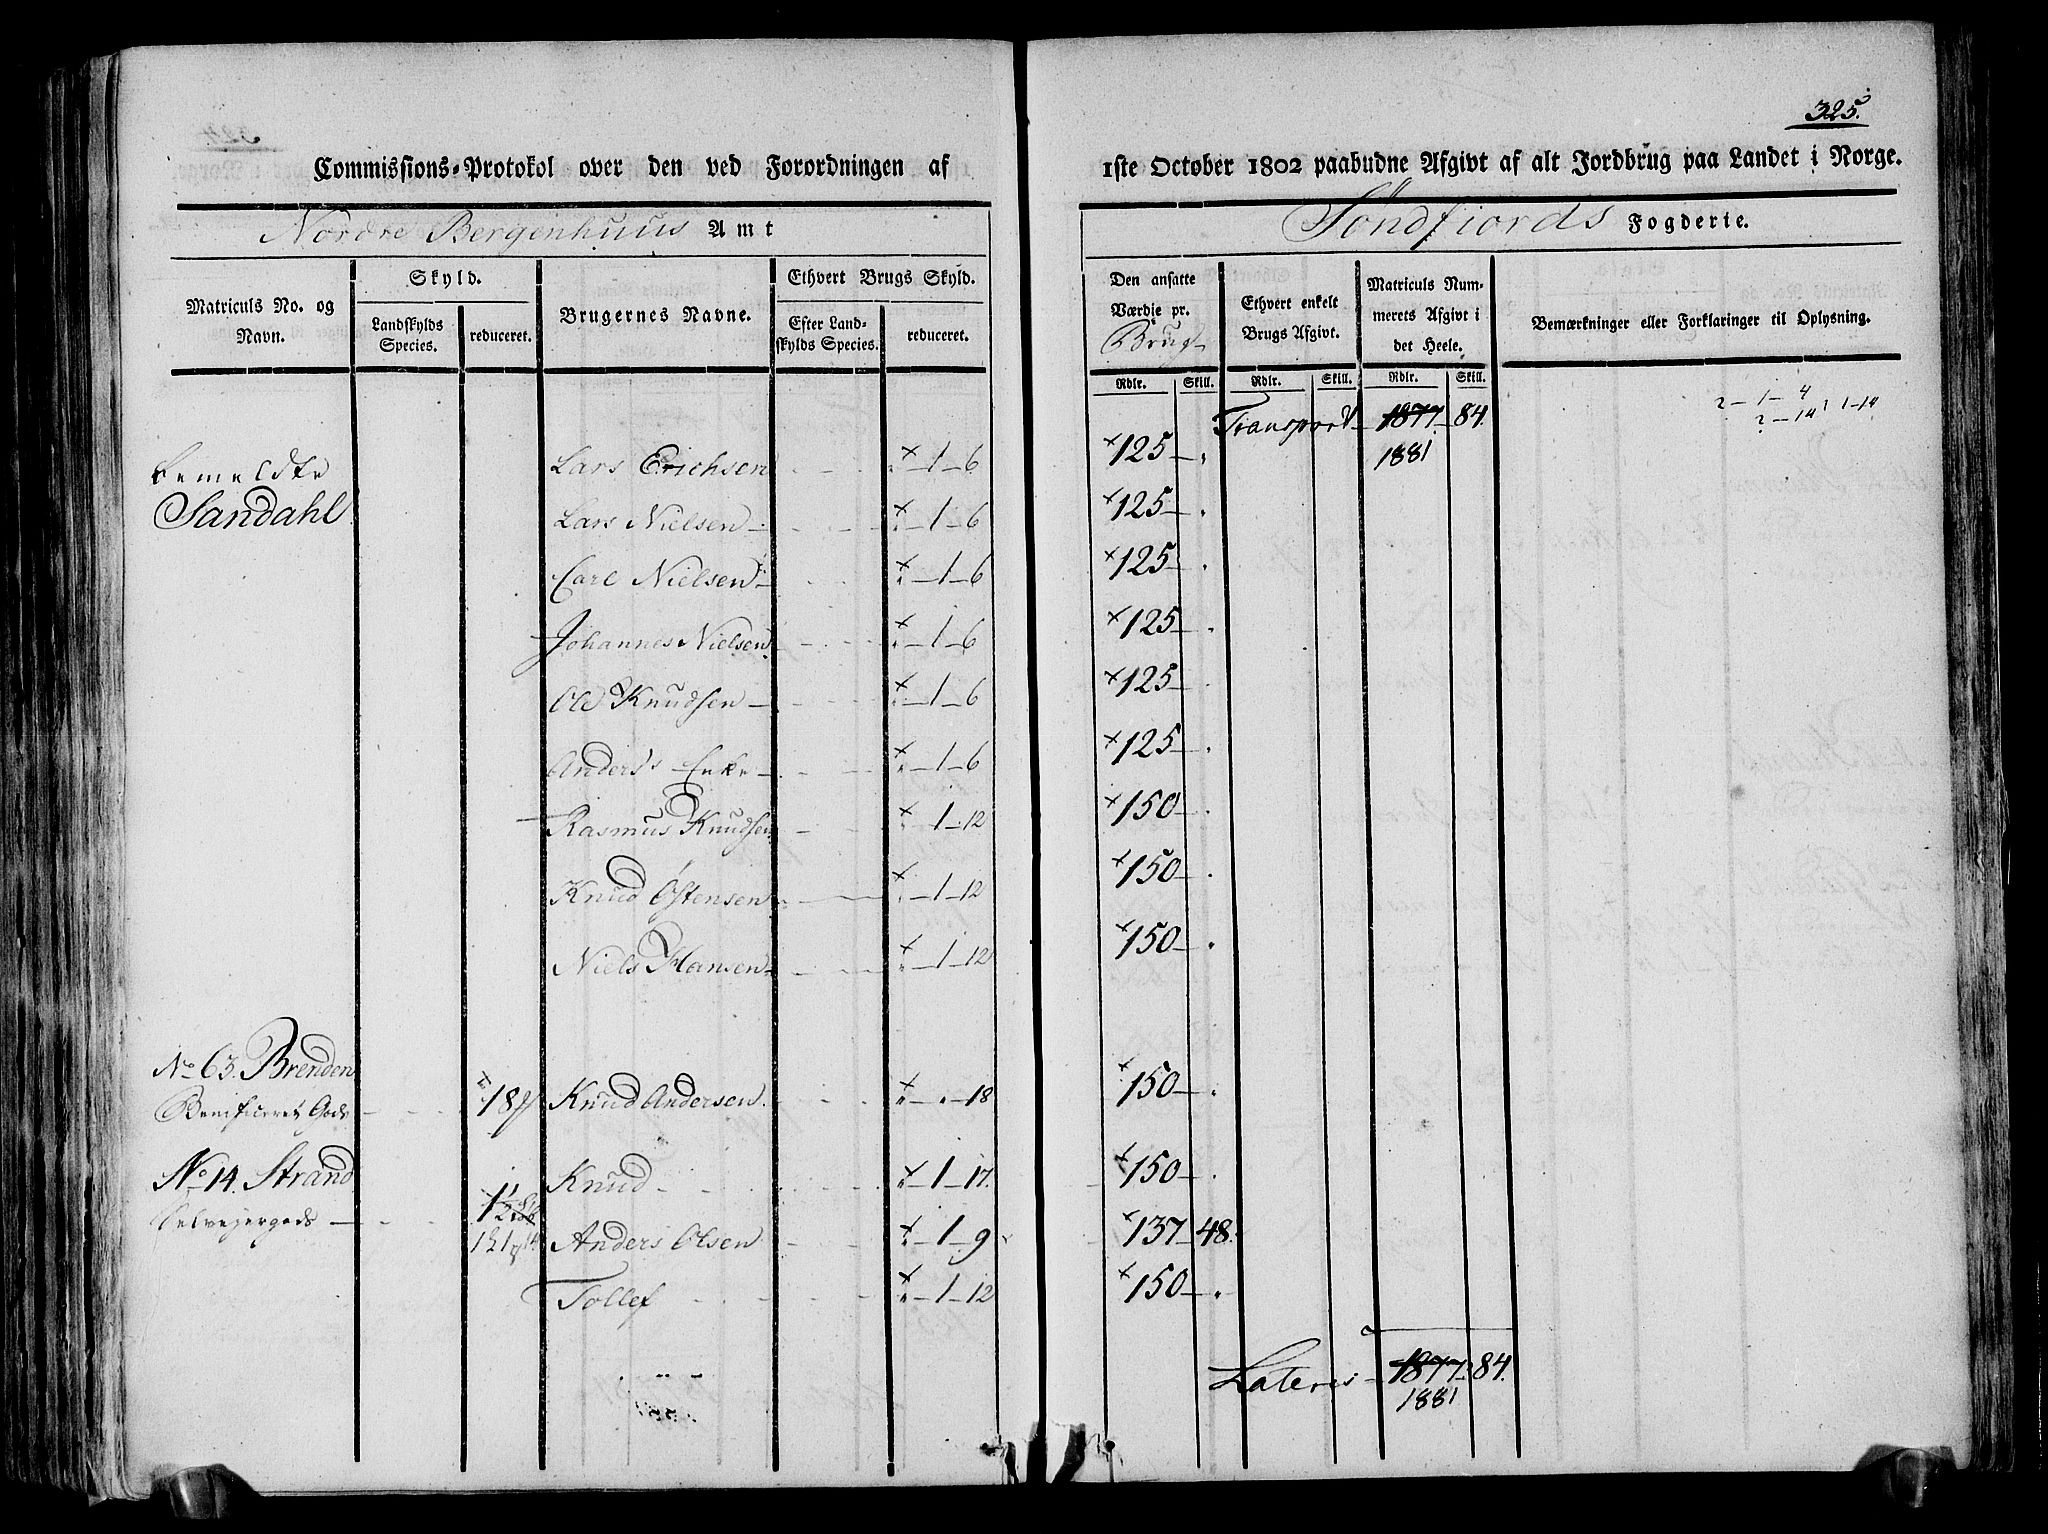 325.
Commissions-Protokol over den ved Forordningen af 1ste October 1802 paabudne Afgivt af alt Jordbrug paa Landet i Norge.
Nordre Bergenhuus Amt Söndfiords Fogderie.
Matriculs No. og Navn.
Skyld.
Landskylds Species.
reduceret.
Brugernes Navne.
Ethvert Brugs Skyld.
Efter Landskylds Species.
reduceret.
Den ansatte Værdie pr. Brug
Ethvert enkelt Brugs Afgivt.
Matriculs Nummerets Afgivt i det Heele.
Bemærkninger eller Forklaringer til Oplysning.
Rdlr. Skill. Rdlr. Skill. Rdlr. Skill.
Transport 1877 84.
1881
2 - 1 - 4
2 - 14 1 - 14
bemeldte Lars Erichsen × 1 - 6 × 125
Sandahl Lars Nielsen × 1 - 6 × 125
Carl Nielsen × 1 - 6 × 125
Johannes Nielsen × 1 - 6 × 125
Ole Knudsen × 1 - 6 × 125
Anders's Enke × 1 - 6 × 125
Rasmus Knudsen × 1 - 12 × 150
Knud Östensen × 1 - 12 × 150
Niels Hansen × 1 - 12 × 150
No 63. Brenden
Benificeret Gods × 18 Knud Andersen × 18 × 150
No 14. Strand Knud × 1 - 17. × 150
Selvejergods Anders Olsen × 1 - 9 × 137 48.
Tollef × 1 - 12 × 150
Lateris 1877 84.
1881